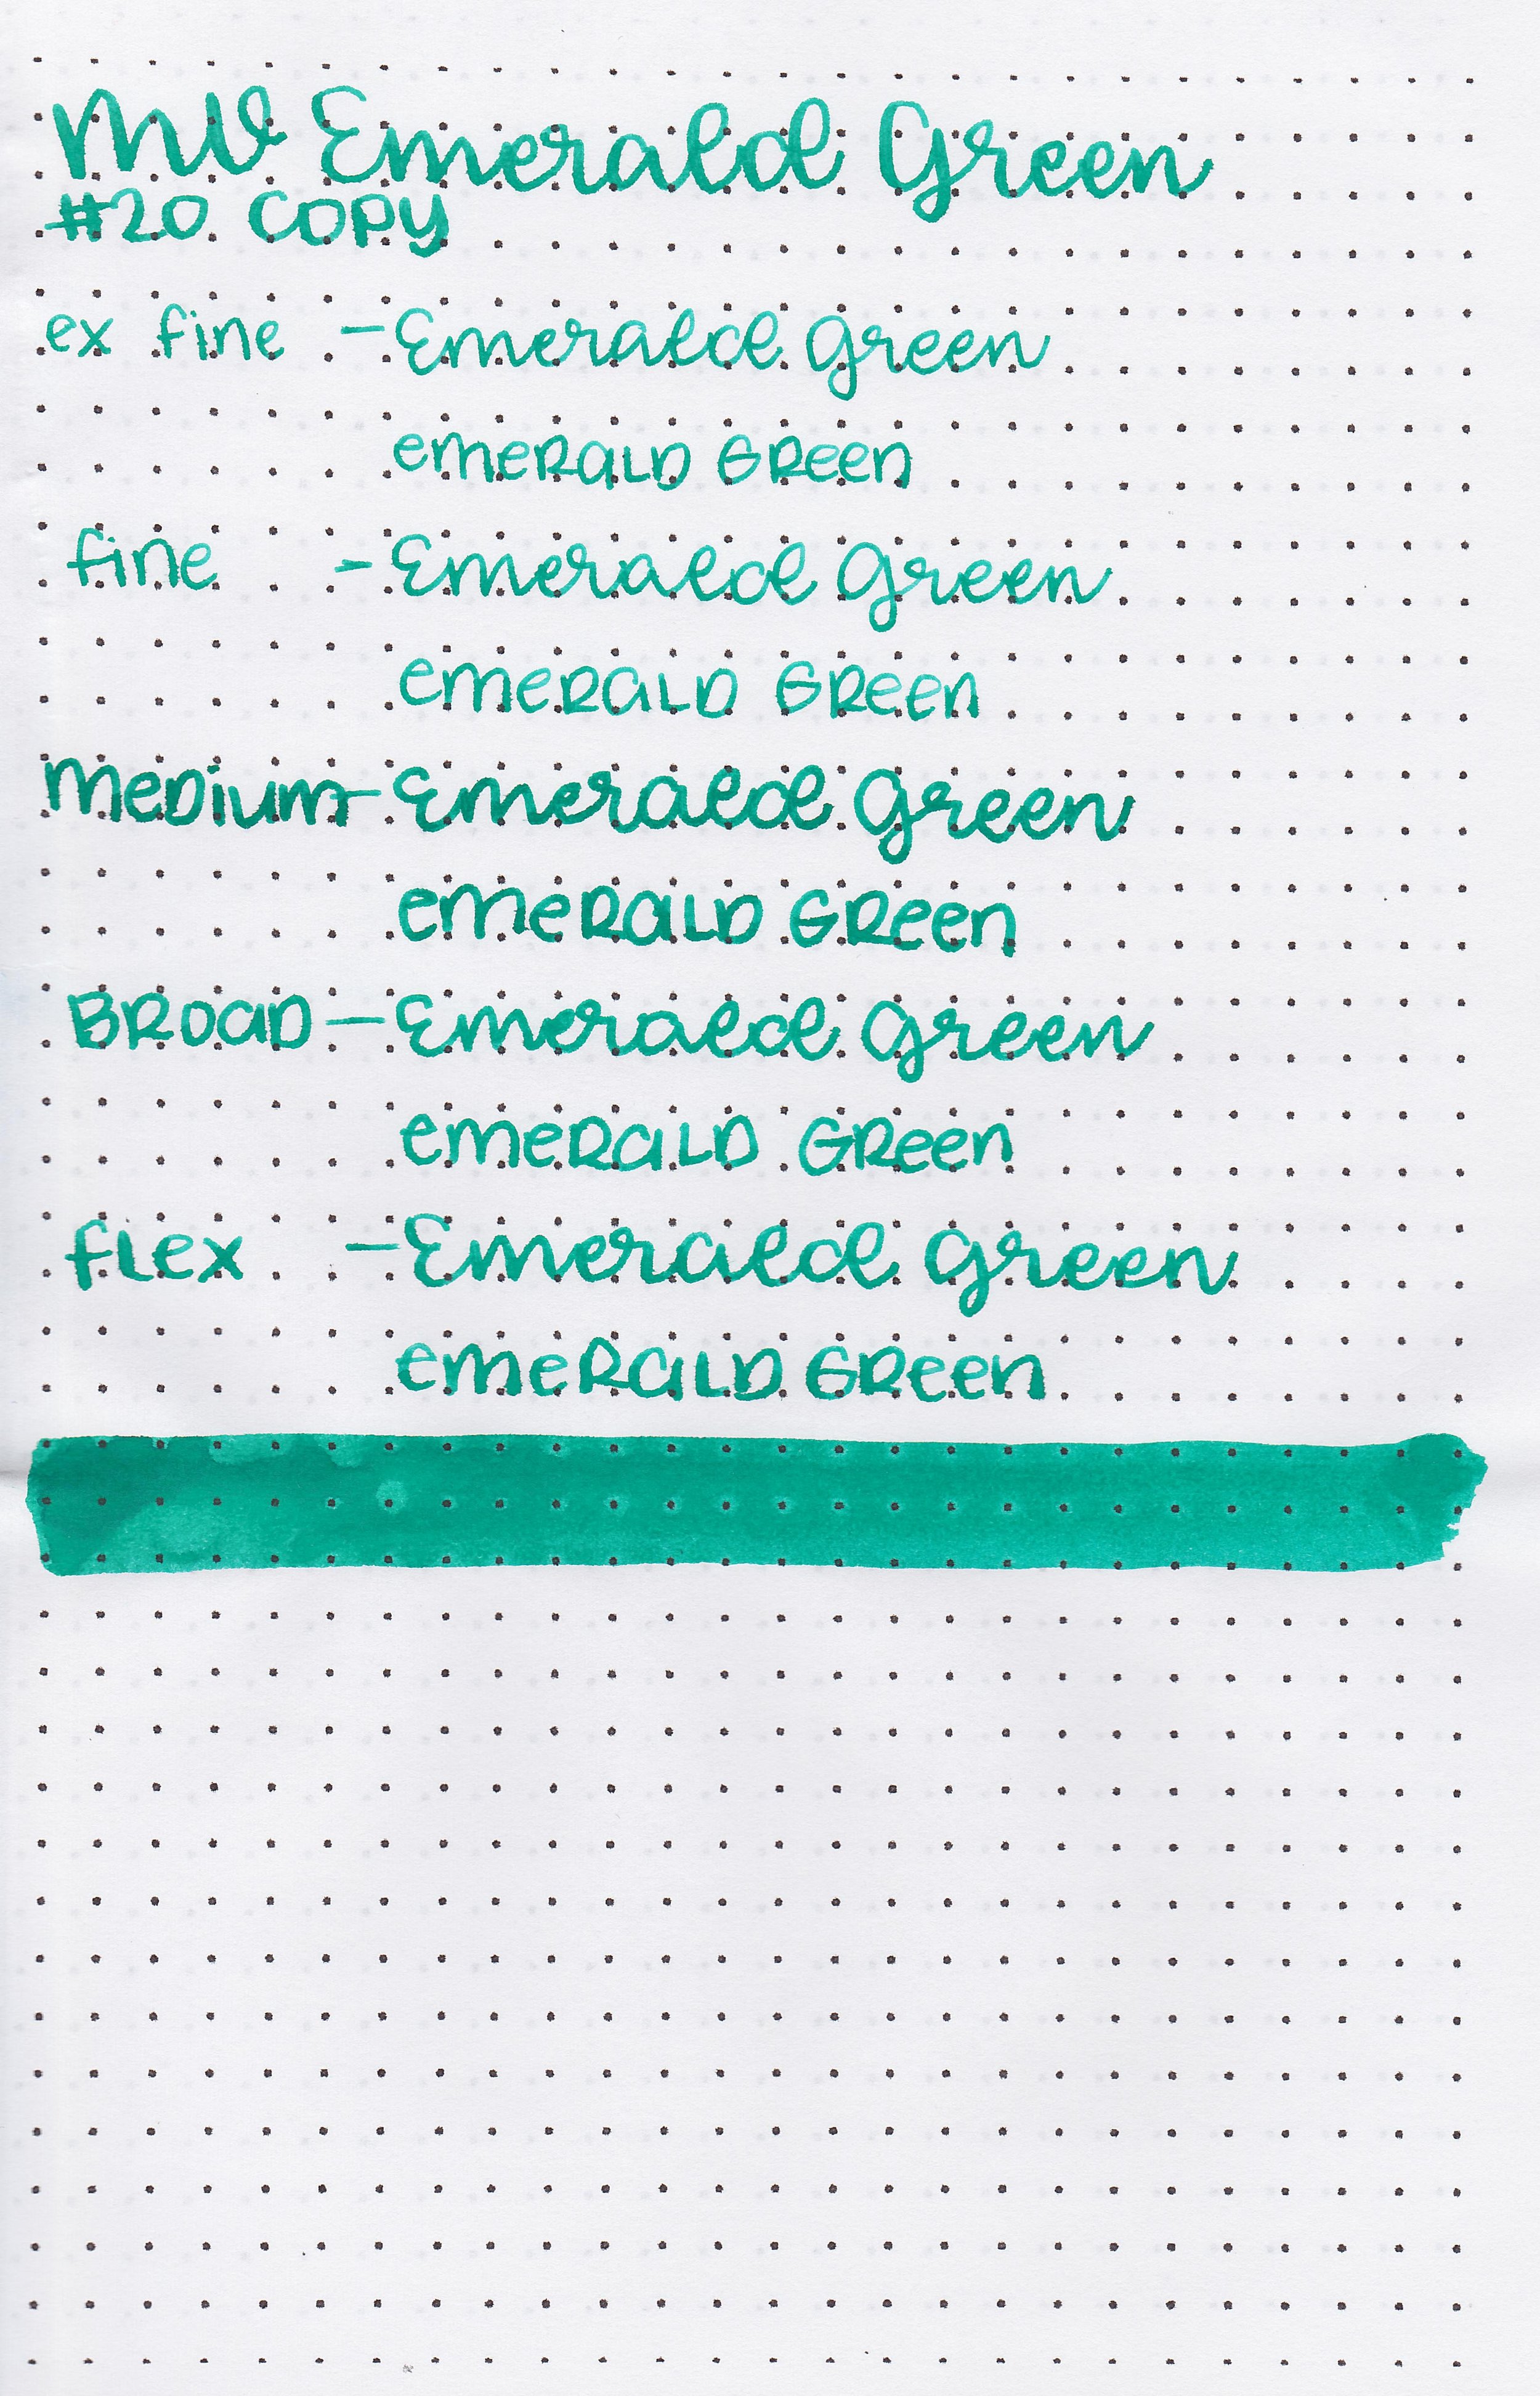 MV Emerald Green
#20 COPY
ex fine - Emerald Green
emeRaLD GReen
fine - Emerald Green
emeRaLD GReen
meDium - Emerald Green
emeRaLD GReen
BROaD - Emerald Green
emeRaLD GReen
fLex - Emerald Green
emeRaLD GReen